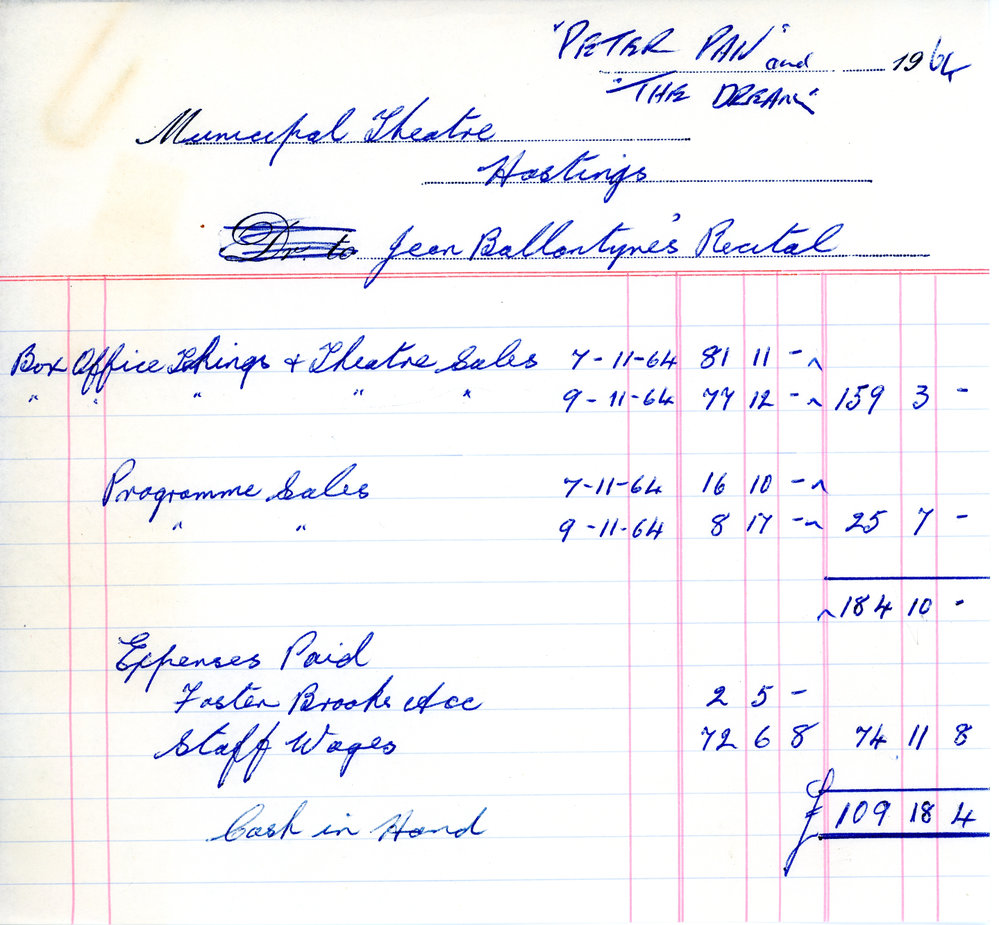 "PETER PAN" and 1964
"THE DREAM"
Municipal Theatre
Hastings
Dr to Jean Ballantyne's Recital
Box Office Takings & Theatre Sales 7-11-64 81 11 -
" " " " " 9-11-64 77 12 - 159 3 -
Programme Sales 7-11-64 16 10 -
" " 9-11-64 8 17 - 25 7 -
184 10 -
Expenses Paid
Foster Brooks Acc 2 5 -
Staff Wages 72 6 8 74 11 8
Cash in Hand £ 109 18 4